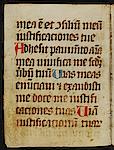 mea ē et ɔsiliū meū
iustificationes tue
Adhesit pauimēto aīa
mea uiuifica me scd̄m
uerbū tuū Uias meas
enūciaui et exaudisti
me doce me iustifi
cationes tuas Uiā
iustificationū tuar